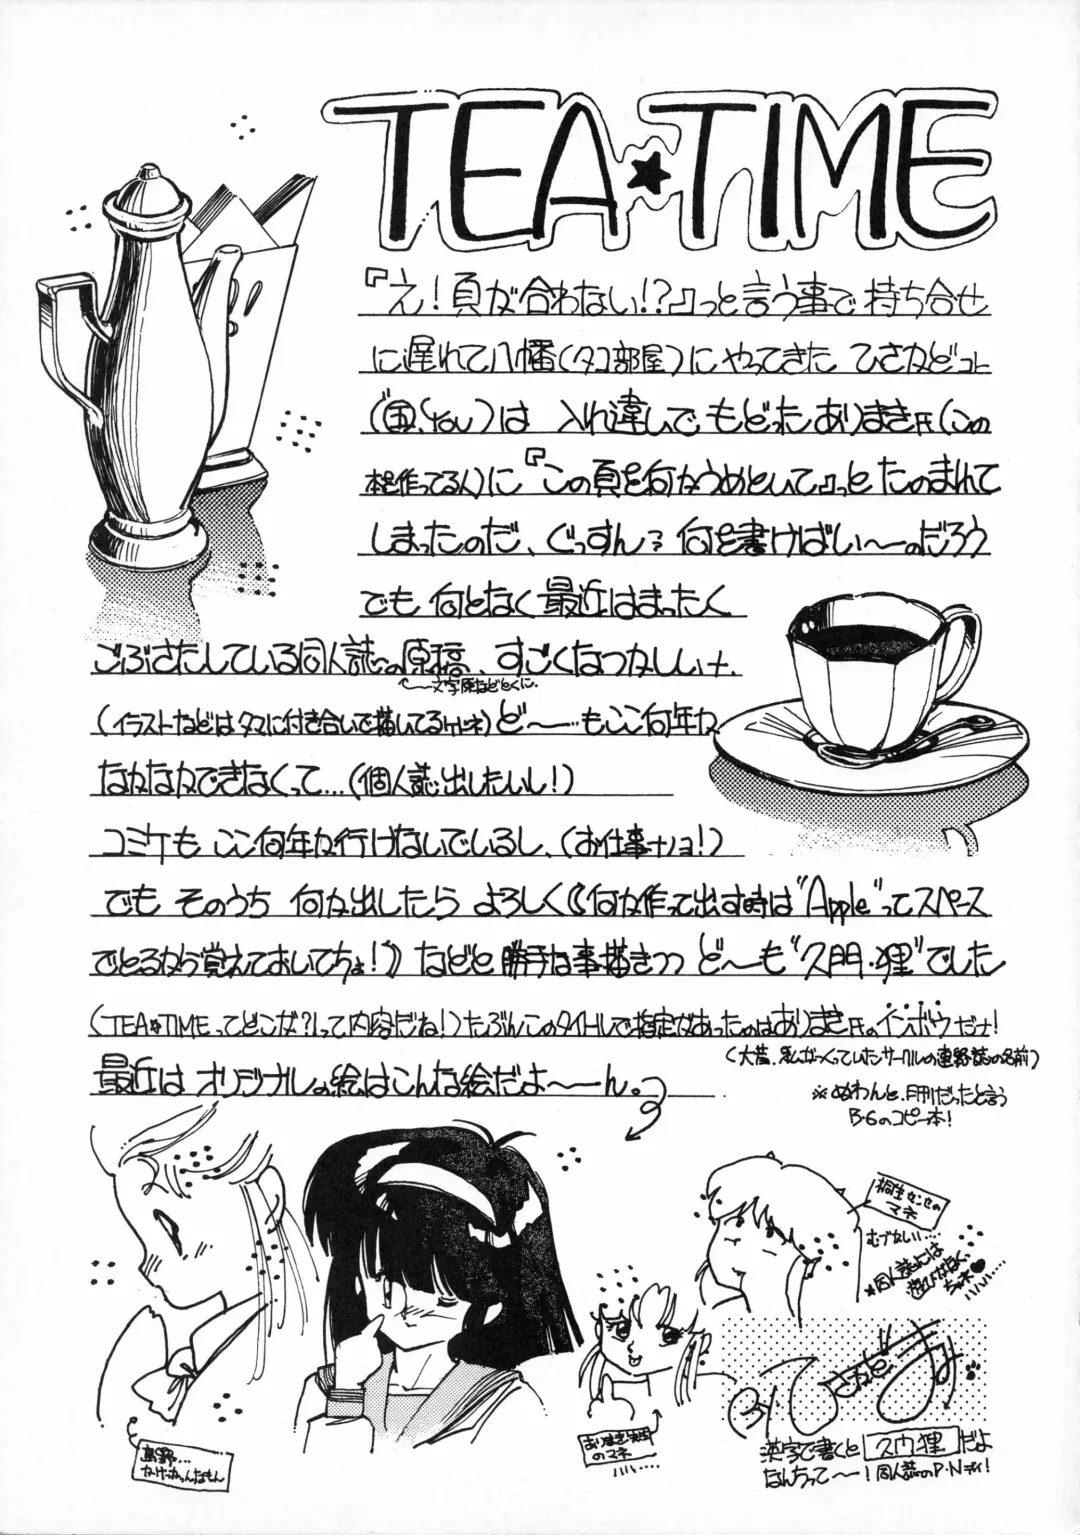 TEA★TIME
『え!頁が合わない!?』っと言う事で持ち合せ
に遅れて八幡(タコ部屋)にやってきた ひさかどコト
は 入れ違いで もどったありまき氏(この
本を作ってる人)に『この頁を何かうめといて』っと たのまれて
しまったのだ、ぐっすん? 何を書けばい〜のだろう
でも 何となく最近はまったく
ごぶさたしている同人誌の原稿、すごくなつかしい+.
文字原などとくに.
(イラストなどはタマに付き合いで描いてるけドネ)ど〜…もここ何年か
なかなかできなくって…(個人誌出したいし!)
コミケも ここ何年か行けないでいるし、(お仕事ナノョ!)
でも そのうち 何か出したら よろしく《何か作って出す時は“Apple”ってスペース
でとるから覚えておいてちょ!》などと勝手な事描きつつ ど〜も“久門・狸”でした
(TEA★TIMEってどこが?って内容だね!)たぶんこのタイトルで指定があったのはありまき氏のインボウだナ!
(大昔、私がつくっていたサークルの連絡誌の名前)
最近は オリジナルの絵はこんな絵だよ〜〜ん。
※ぬわんと、月刊だったと言う
B・6のコピー本!
桐生センセの
マネ
むづかしい....
★同人誌には
島野...
ありまき氏
のマネ
漢字で書くと 久門狸 だよ
なんちって〜! 同人誌のP・Nディ!